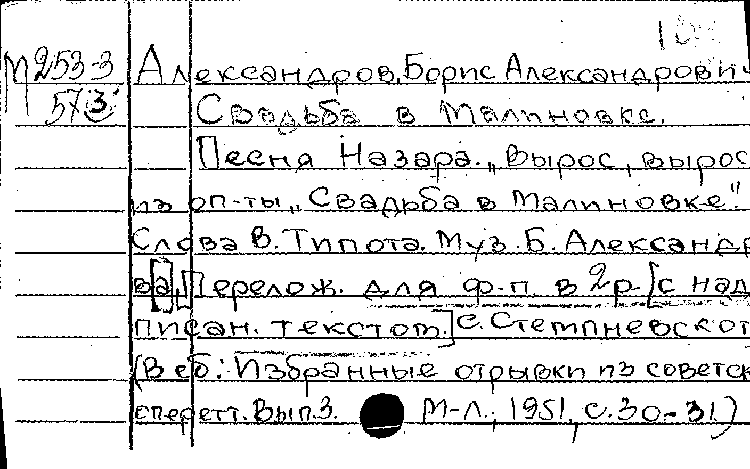 М253-3 Александров, Борис Александрович
57 3 Свадьба в Малиновке.
Песня Назара. „Вырос, вырос
из оп-ты „Свадьба в Малиновке".
Слова В. Типота. Муз. Б. Александр
ва. Перелож. для ф-п. в 2 р. [с над
писан. текстом.] С. Стемпневског
(В сб: Избранные отрывки из советск
оперетт. Вып. 3. М-Л., 1951, с. 30-31)